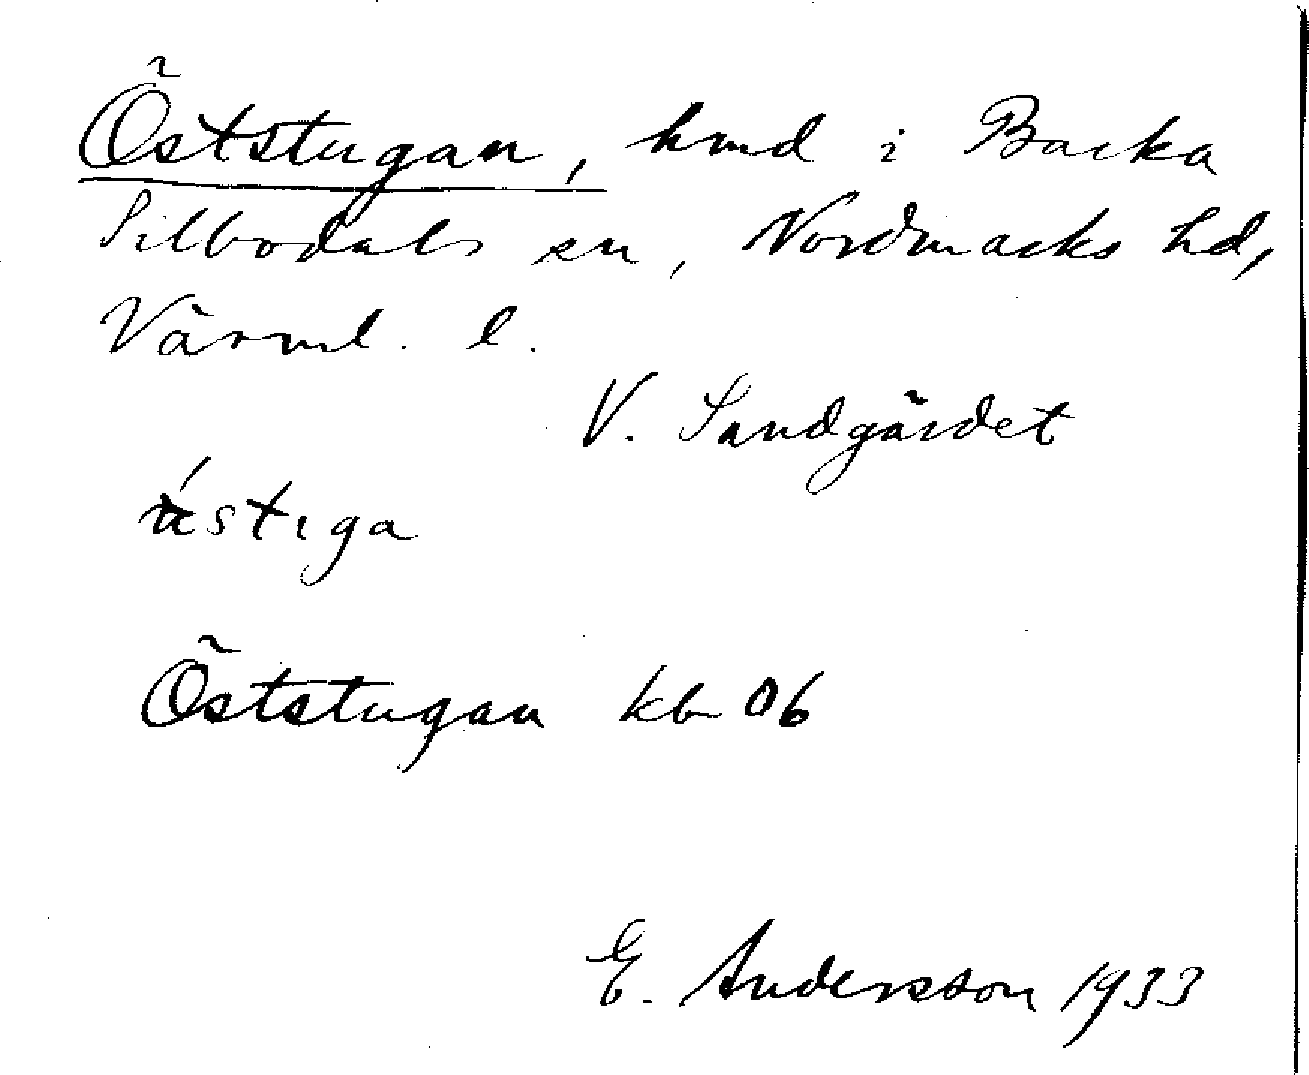 Öststugan, hmd i Backa
Silbodals sn, Nordmarks hd,
Värml. l.
V. Sandgärdet
östiga
Öststugan kb 06
E. Andersson 1933